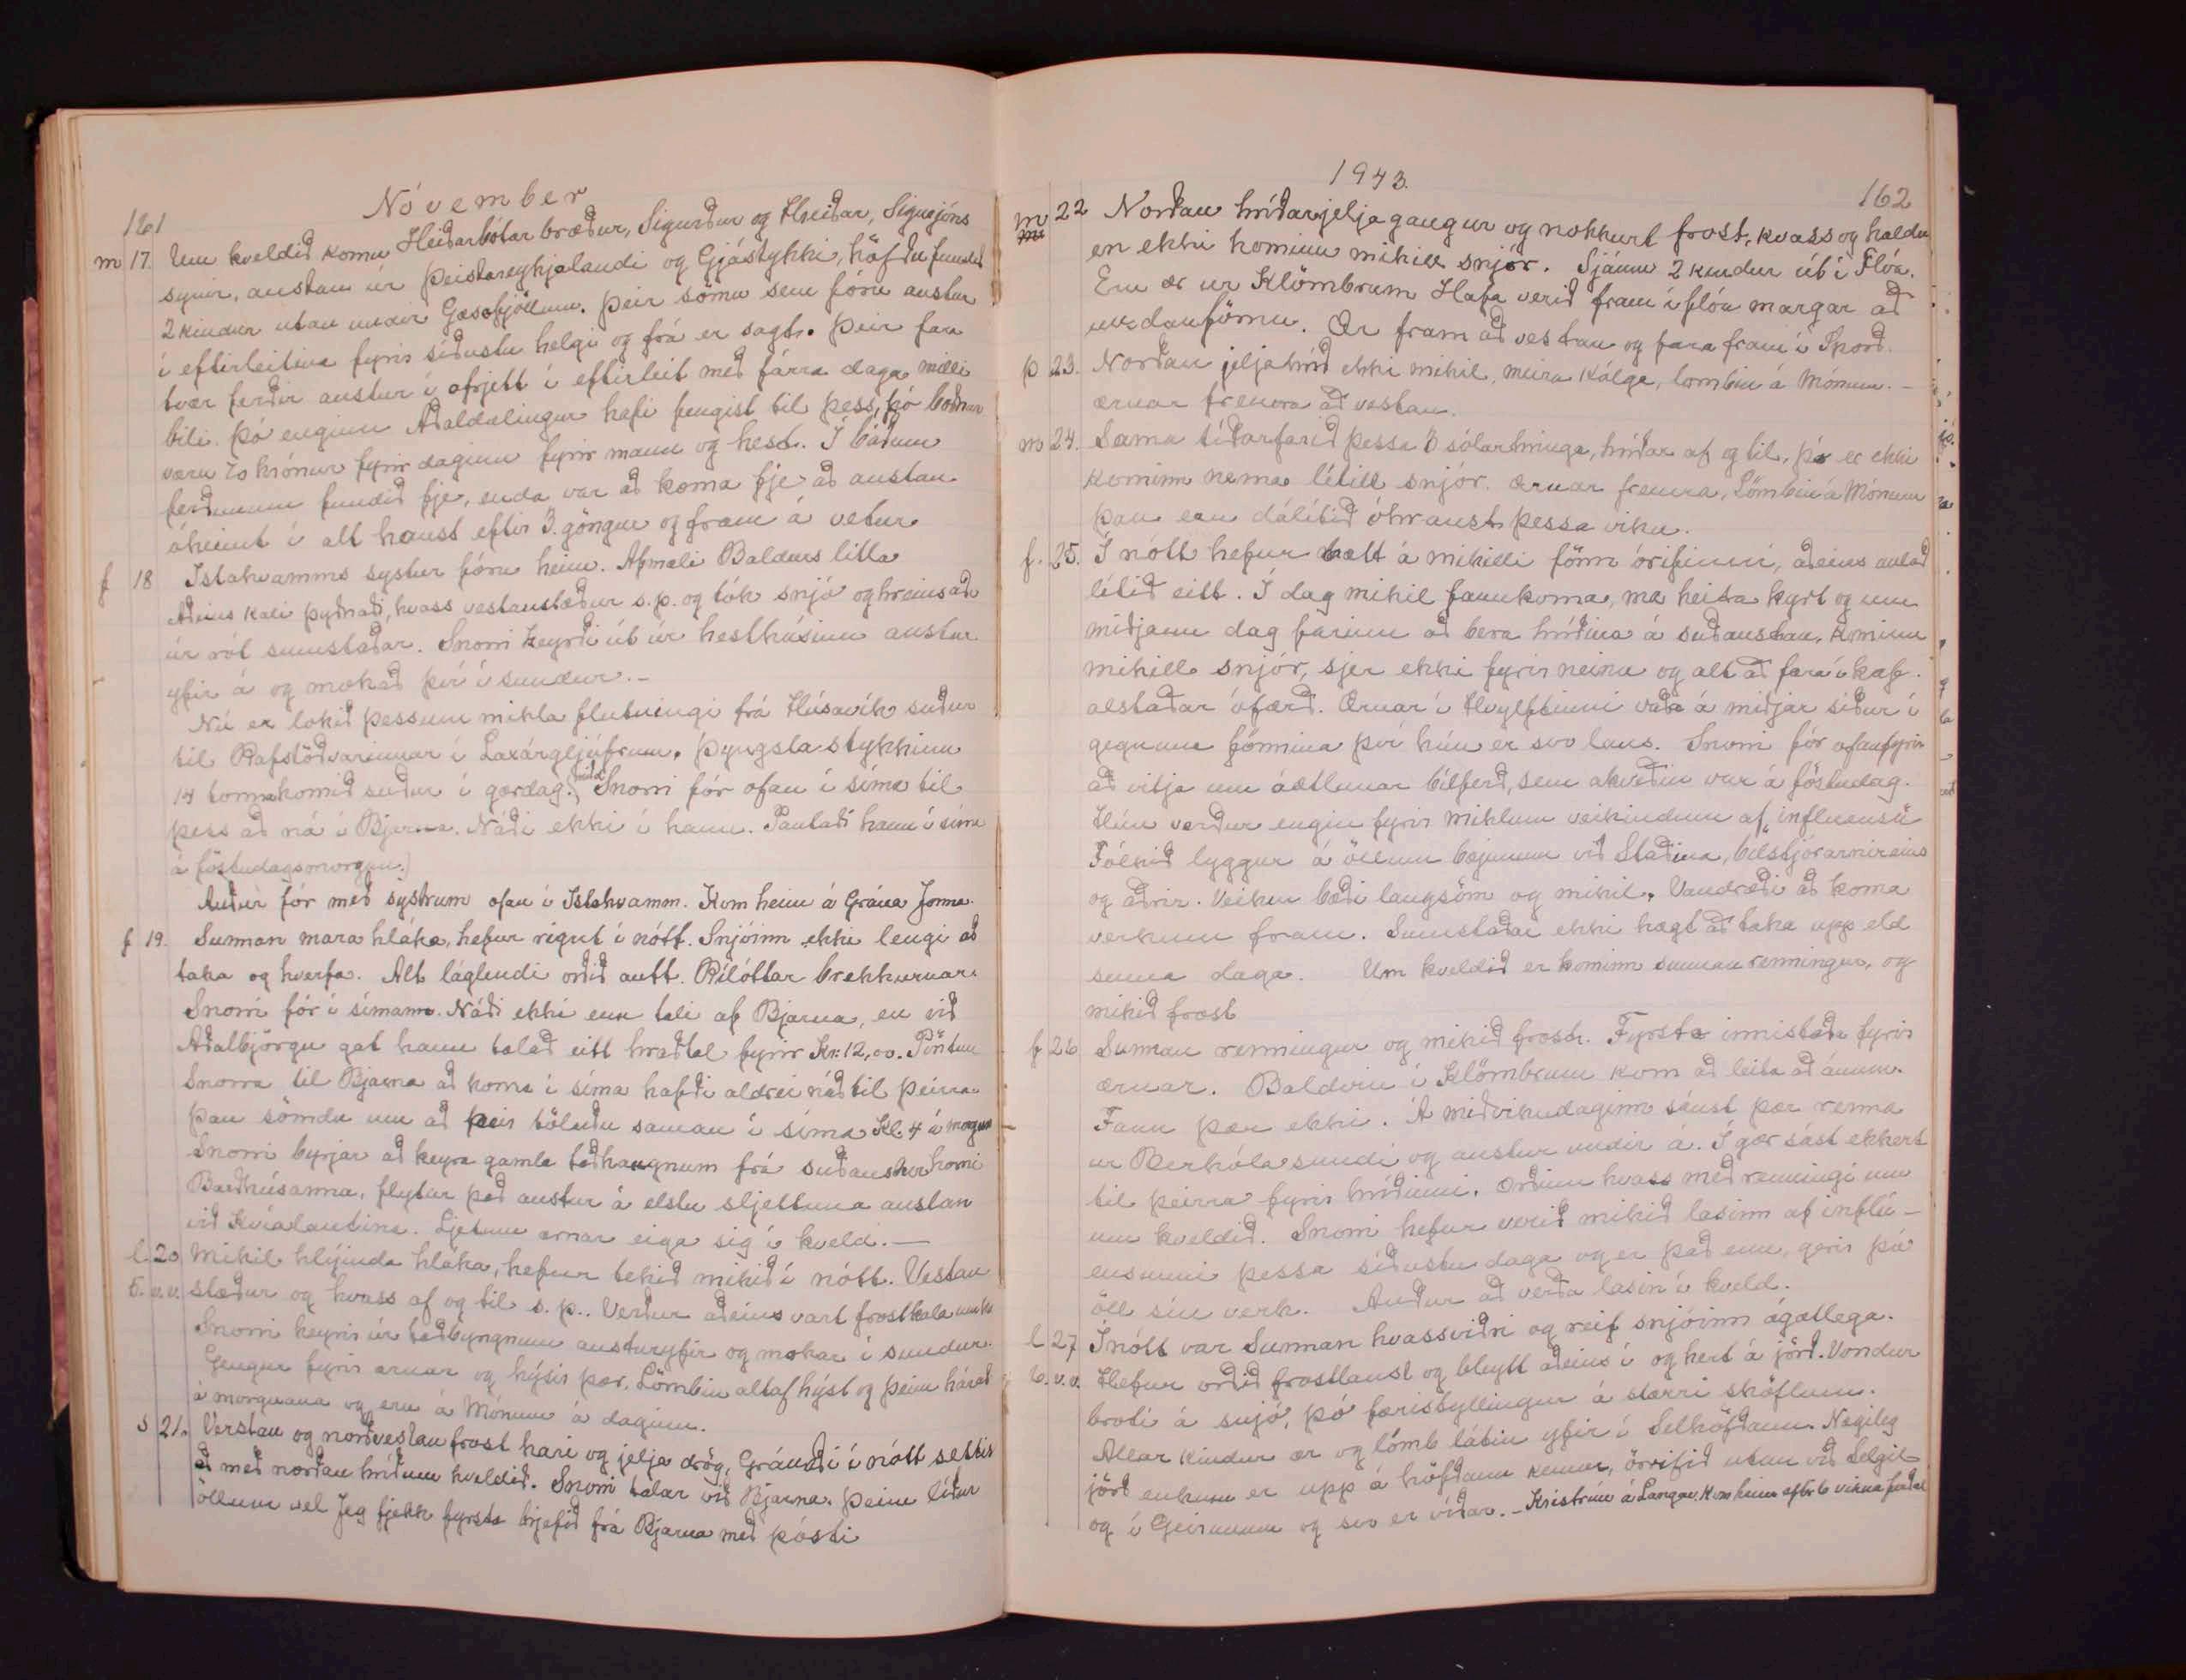 161
Nóvember
m 17. Um kveldið komu Heiðarbótar bræður, Sigurður og Hreiðar, Sigurjóns
synir, austan úr Þeistareykjalandi og Gjástykki, höfðu fundið
2 kindur utan undir Gæsafjöllum. Þeir sömu sem fóru austur
í eftirleitina fyrir síðustu helgi og frá er sagt. Þeir fara
tvær ferðir austur í afrjett í eftirleit með fárra daga milli
bili. Þó enginn Aðaldælingur hafi fengist til þess, þó boðnar
væru 70 krónur fyrir daginn fyrir mann og hest. Í báðum
ferðunum fundið fje, enda var að koma fje að austan
óheimt í alt haust eftir 3. göngur og fram á vetur.
f 18 Ystahvamms systur fóru heim. Afmæli Baldurs litla
Aðeins kali þyðnaði, hvass vestanstæður s.p. og tók snjó og hreinsaði
úr rót sumstaðar. Snorri keyrði út úr hesthúsinu austur
yfir á og mokað því í sundur.-
Nú er lokið þessum mikla flutningi frá Húsavík suður
til Rafstöðvarinnar í Laxárgljúfrum. Þyngsta stykkinu
14 tonna komið suður í gærdag. Snorri fór ofan í síma til
þess að ná í Bjarna. Náði ekki í hann. Pantaði hann í síma
á föstudagsmorgun.)
Auður fór með systrum ofan í Ystahvamm. Kom heim á Grána Jonna.
f 19. Sunnan mara hláka, hefur rignt í nótt. Snjóinn ekki lengi að
taka og hverfa. Alt láglendi orðið autt. Rílóttar brekkurnar.
Snorri fór í símann. Náði ekki enn tali af Bjarna, en við
Aðalbjörgu gat hann talað eitt hraðtal fyrir Kr: 12,00. Pöntun
Snorra til Bjarna að koma í síma hafði aldrei náð til þeirra.
Þau sömdu um að þeir töluðu saman í síma Kl. 4 á morgun
Snorri byrjar að keyra gamla taðhaugnum frá suðausturhorni
Baðhúsanna, flytur það austur á elstu sljettuna austan
við Kvíalautina. Ljetum ærnar eiga sig í kveld.—
l. 20. Mikil hlýinda hláka, hefur tekið mikið í nótt. Vestan
5. v.v. stæður og hvass af og til s.p.. Verður aðeins vart frostkala
Snorri keyrir úr taðbyngnum austuryfir og mokar í sundur.
Gengur fyrir ærnar og hýsir þær. Lömbin altaf hýst og þeim hárað
á morgnana og eru á Mónum á daginn.
s 21. Vestan og norðvestan frost kari og jelja drög, Gránaði í nótt settir
að með norðan hríðum kveldið. Snorri talar við Bjarna. Þeim líður
öllum vel Jeg fjekk fyrsta brjefið frá Bjarna með pósti
1943.
162
m 22 Norðan hríðarjelja gangur og nokkurt frost, kvass og kaldur
en ekki kominn mikill snjór. Sjáum 2 kindur út í Flóa.
Eru ær ur Klömbrum Hafa verið fram í flóa margar að
undanförnu. Ær fram að vestan og fara fram í Sporð.
þ 23. Norðan jeljahríð ekki mikil, meira Kálga, lombin á Mónum.-
ærnar fremra að vestan.
m 24. Sama tíðarfarið þessa 3 sólarhringa, hríðar af og til, þó er ekki
kominn nema lítill snjór. Ærnar fremra, Lömbin á Mónum
Þau eru dálítið óhraust þessa viku.
f. 25. Í nótt hefur bætt á mikilli fönn órifinni, aðeins aulað
lítið eitt. Í dag mikil fannkoma, má heita kyrt og um
miðjann dag farinn að bera hríðina á suðaustan, kominn
mikill snjór, sjer ekki fyrir neinu og alt að fara í kaf.
alstaðar ófærð. Ærnar í Hvylftinni vaða á miðjar síður í
gegnum fönnina því hún er svo laus. Snorri fór ofanfyrir
að vitja um áætlunar bílferð, sem akveðin var á föstudag.
Hún verður engin fyrir miklum veikindum af „influensu"
Fólkið lyggur á öllum bæjunum við Staðina, bílstjórarnir eins
og aðrir. Veikin bæði langsöm og mikil. Vandræði að koma
verkum fram. Sumstaðar ekki hægt að taka upp eld
suma daga. Um kveldið er kominn sunnan renningur, og
mikið frost
f 26 Sunnan renningur og mikið frost. Fyrsta innistaða fyrir
ærnar. Baldvin í Klömbrum kom að leita að ánum.
Fann þær ekki. Á miðvikudaginn sáust þær renna
ur Berhólasundi og austur undir á. Í gær sást ekkert
til þeirra fyrir hríðinni. Orðinn hvass með renningi um
um kveldið. Snorri hefur verið mikið lasinn af inflú-
ensunni þessa síðustu daga og er það enn, gerir þó
öll sín verk. Auður að verða lasin í kveld.
l 27 Í nótt var Sunnan hvassviðri og reif snjóinn ágætlega.
6. v.v. Hefur orðið frostlaust og bleytt aðeins í og hert á jörð. Vondur
broti á snjó, þó færistyllingur á stærri sköflum.
Allar kindur ær og lömb látin yfir í Selhöfðann. Nægileg
jörð einkum er upp á höfðann kemur, örrifið utan við Selgil
og í Geirunum og svo er víðar. - Kristrún á Langav. Kom heim eftir 6 vikna